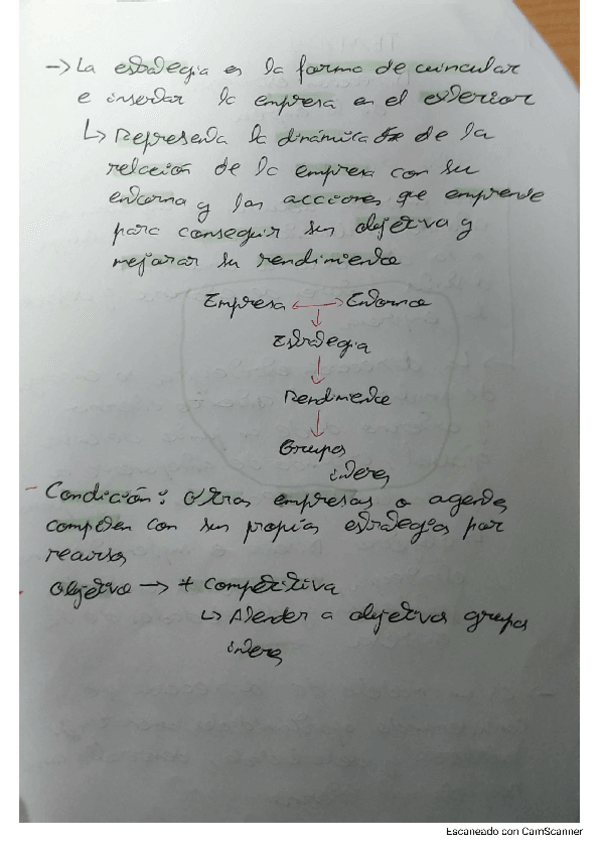 → La estrategia es la forma de vincular
e insertar la empresa en el exterior
↳ Representa la dinámica de la
relación de la empresa con su
entorno y las acciones que emprende
para conseguir sus objetivos y
mejorar su rendimiento
Empresa ↔ Entorno
↓
Estrategia
↓
Rendimiento
↓
Grupos
interes
- Condición: Otras empresas o agentes
compiten con sus propias estrategias por
recursos
- Objetivo → + competitiva
↳ Atender a objetivos grupos
interes
Escaneado con CamScanner